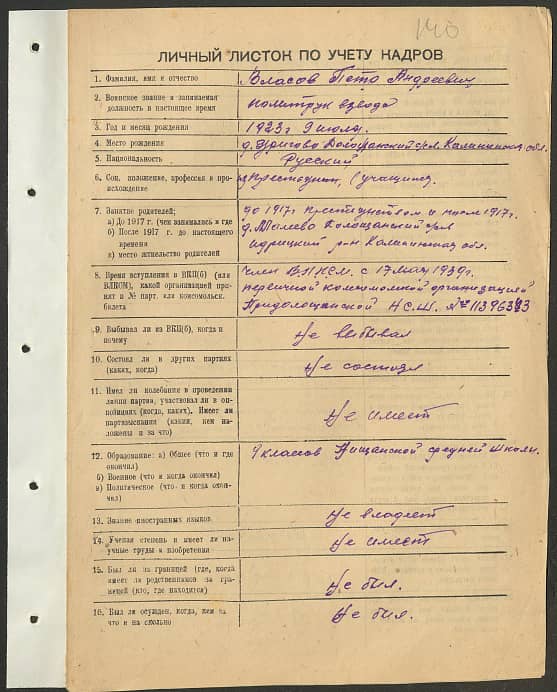 140
ЛИЧНЫЙ ЛИСТОК ПО УЧЕТУ КАДРОВ
1. Фамилия, имя и отчество
Власов Петр Андреевич
2. Воинское звание и занимаемая
должность в настоящее время
политрук взвода
3. Год и месяц рождения
1923 г 9 июля.
4. Место рождения
д. Долощанский с/с. Калининская обл.
5. Национальность
Русский
6. Соц. положение, профессия и про-
исхождение
Крестьянин, (учащийся.
7. Занятие родителей;
а) До 1917 г. (чем занимались и где
б) После 1917 г. до настоящего
времени
в) место жительство родителей
до 1917г крестьянством и после 1917г.
д. Малево Долощанский с/с
Идрицкий р-н Калининская обл.
8. Время вступления в ВКП(б) (или
ВЛКСМ), какой организацией при-
нят и № парт. или комсомольск.
билета
Член ВЛКСМ. с 17 мая 1939г.
первичной комсомольской организацией
Придолощанской Н.С.Ш. №
9. Выбывал ли из ВКП(б), когда и
почему
Не выбывал
10. Состоял ли в других партиях
(каких, когда)
Не состоял
11. Имел ли колебания в проведении
линии партии, участвовал ли в оп-
позициях (когда, каких). Имеет ли
партвзыскания (какия, кем на-
ложены и за что)
Не имеет
12. Образование: а) Общее (что и где
окончил)
б) Военное (что и когда окончил)
в) Политическое (что и когда окон-
чил)
9 классов Нищанской средней школы.
13. Знание иностранных языков
Не владеет
14. Ученая степень и имеет ли на-
учные труды и изобретения
Не имеет
15. Был ли за границей (где, когда
имеет ли родственников за гра-
ницей (кто, где находится)
Не был.
16. Был ли осужден, когда, кем за
что и на сколько
Не был.